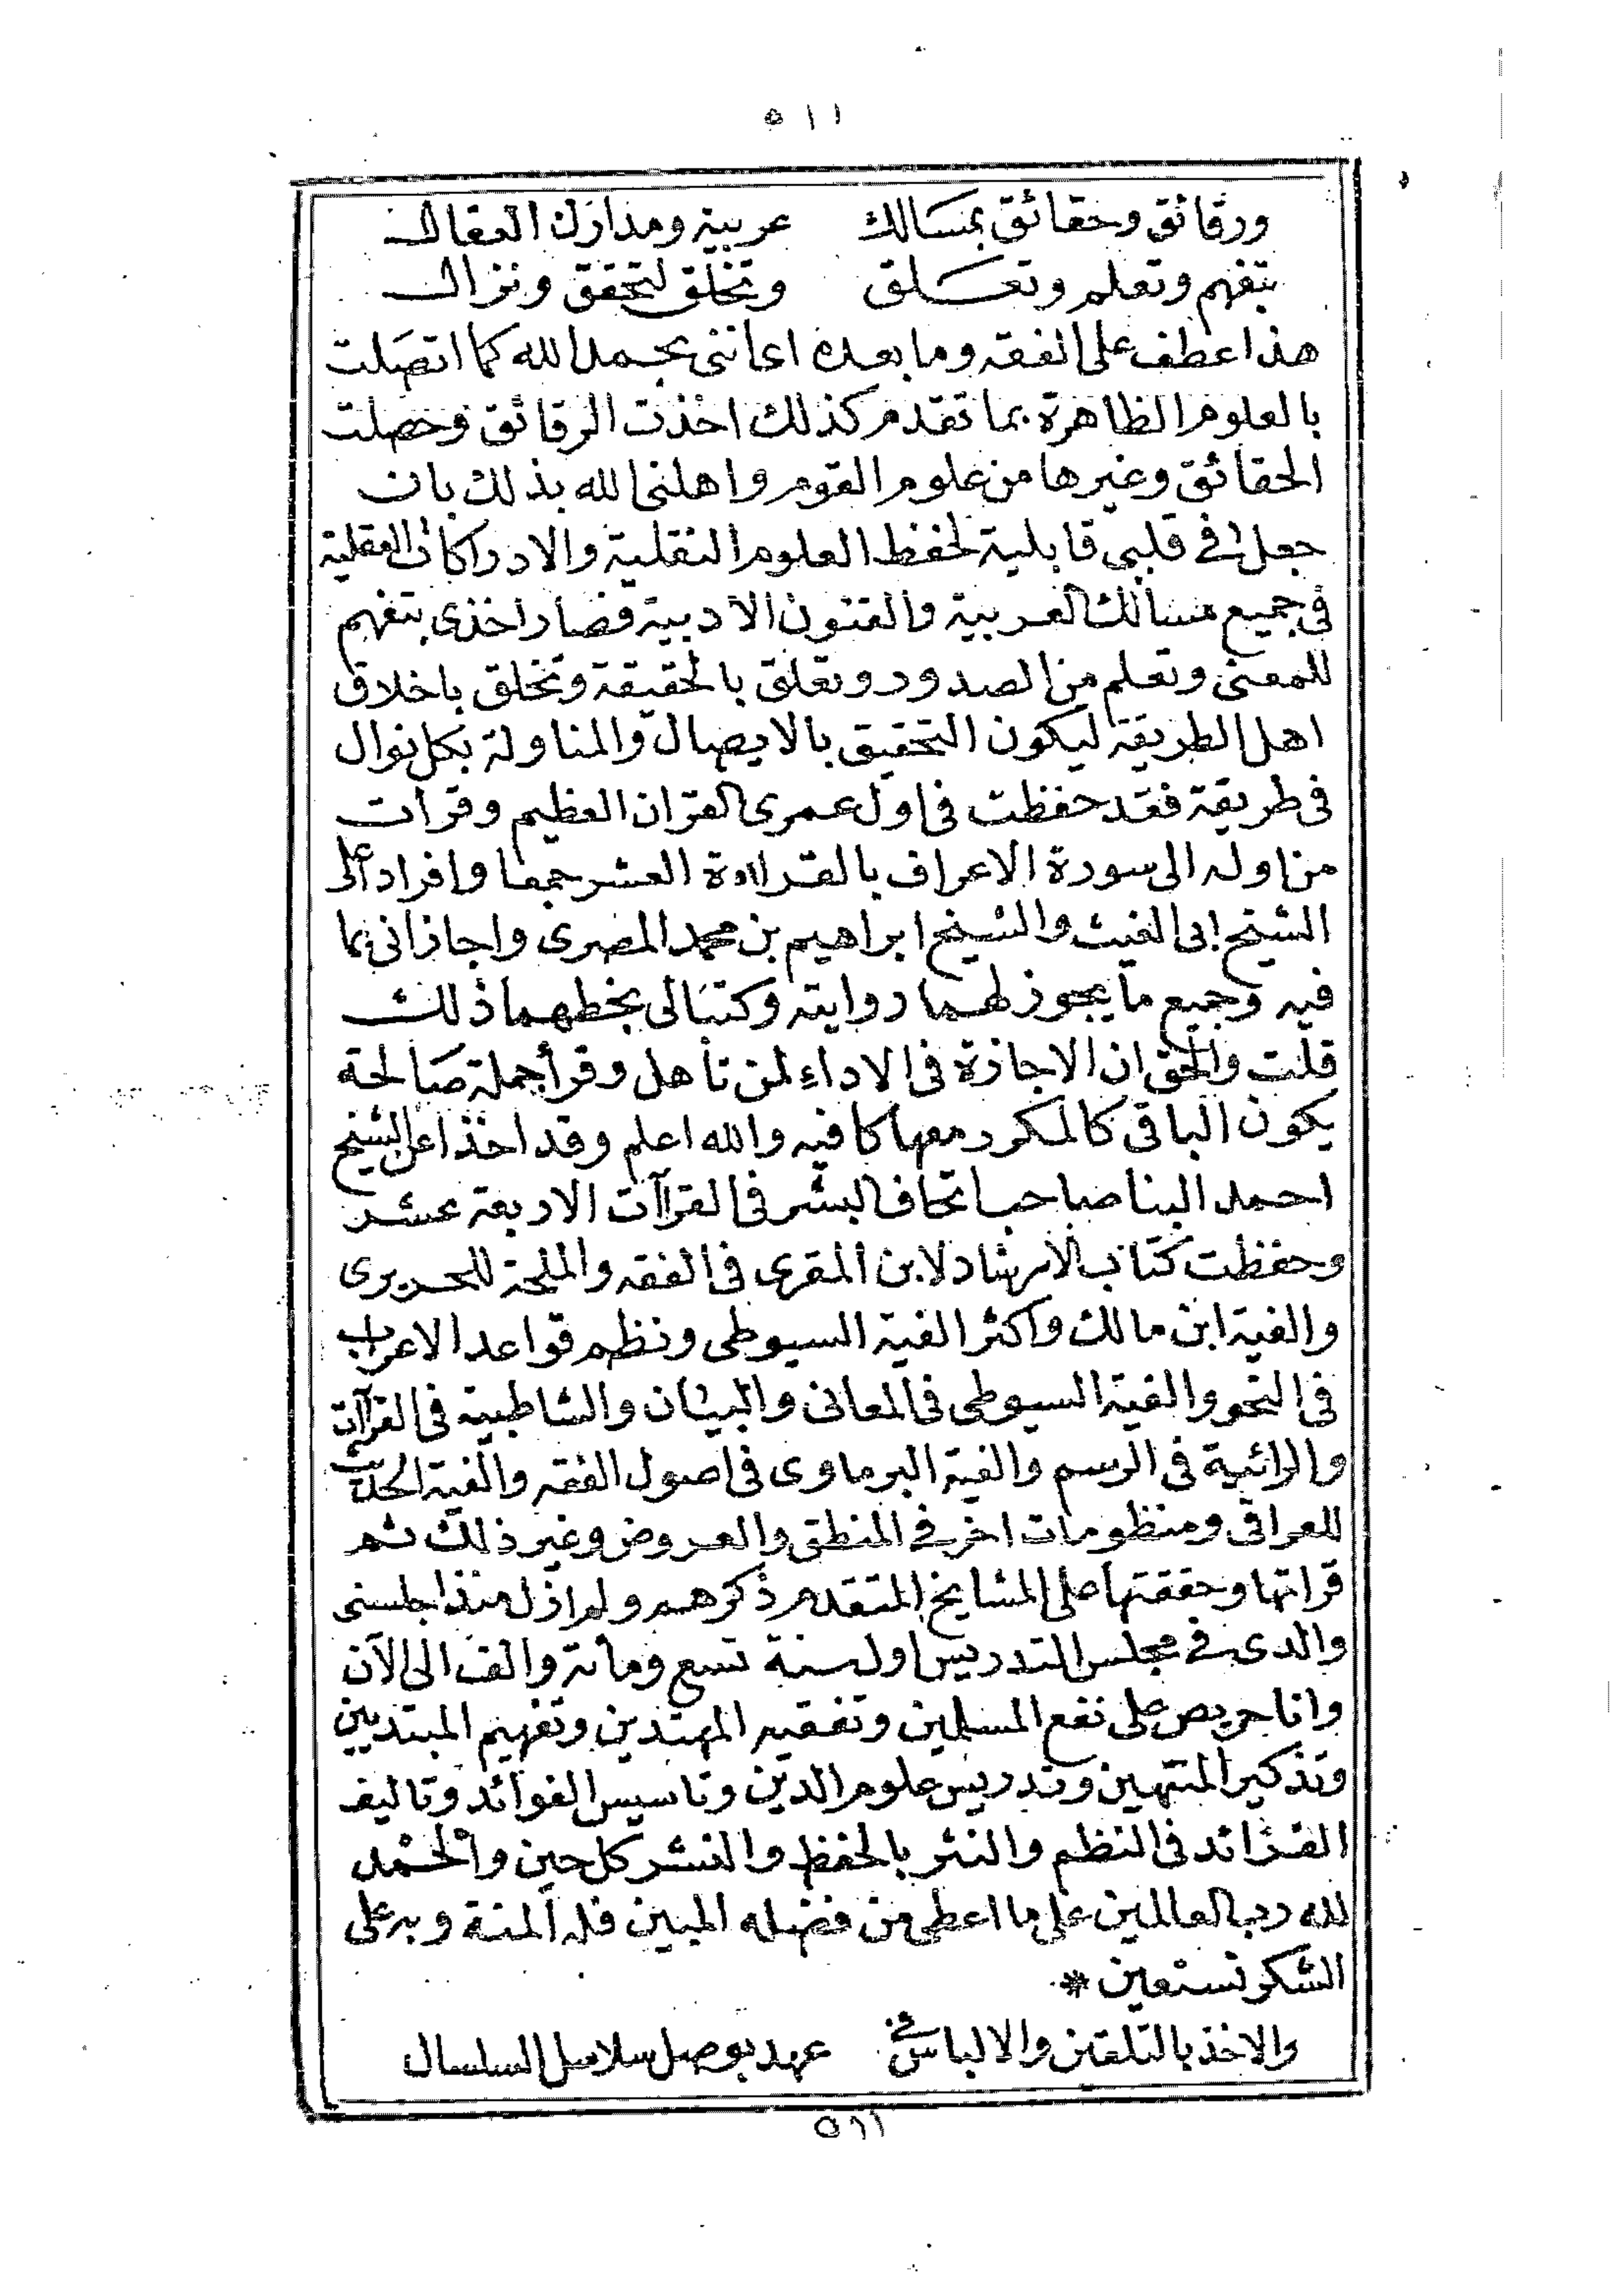 ٥١١
ورقائق وحقائق بمسالك عربية ومدارك العقال
بتفهم وتعلم وتعلق وتخلق لتحقق ونزال
هذا عطف على الفقه وما بعده اى انى بحمد الله كما اتصلت
بالعلوم الظاهرة بما تقدم كذلك اخذت الرقائق وحصلت
الحقائق وغيرها من علوم القوم واهلنى الله بذلك بان
جعل فى قلبى قابلية لحفظ العلوم النقلية والادراكات العقلية
فى جميع مسالك العربية والفنون الادبية فصار اخذى بتفهم
للمعنى وتعلم من الصدور وتعلق بالحقيقة وتخلق باخلاق
اهل الطريقة ليكون التحقيق بالايصال والمناولة بكل نوال
فى طريقة فقد حفظت فى اول عمرى القران العظيم وقرات
من اوله الى سورة الاعراف بالقراءة العشر جمعا وافرادا على
الشيخ ابى الغيث والشيخ ابراهيم بن محمد المصرى واجازانى بما
فيه وجميع ما يجوز لهما روايته وكتبا لى بخطهما ذلك
قلت والحق ان الاجازة فى الاداء لمن تأهل وقرأ جملة صالحة
يكون الباقى كالمكرر معها كافيه والله اعلم وقد اخذا عن الشيخ
احمد البنا صاحب اتحاف البشر فى القرآآت الاربعة عشر
وحفظت كتاب الارشاد لابن المقرى فى الفقه والملحة للحريرى
والفية ابن مالك واكثر الفية السيوطى ونظم قواعد الاعراب
فى النحو والفية السيوطى فى المعانى والبيان والشاطبية فى القرآآت
والرائية فى الرسم والفية البرماوى فى اصول الفقه والفية الحديث
للعراقى ومنظومات اخر فى المنطق والعروض وغير ذلك ثم
قراتها وحققتها على المشايخ المتقدم ذكرهم ولم ازل منذ اجلسنى
والدى فى مجلس التدريس اول سنة تسع ومائة والف الى الآن
وانا حريص على نفع المسلمين وتفقيه المهتدين وتفهيم المبتديين
وتذكير المنتهين وتدريس علوم الدين وتاسيس الفوائد وتاليف
الفرائد فى النظم والنثر بالحفظ والنشر كل حين والحمد
لله رب العالمين على ما اعطى من فضله المبين فله المنة وبه على
الشكر نستعين *
والاخذ بالتلقين والالباس فى عهد بوصل سلاسل السلسال
٥١١